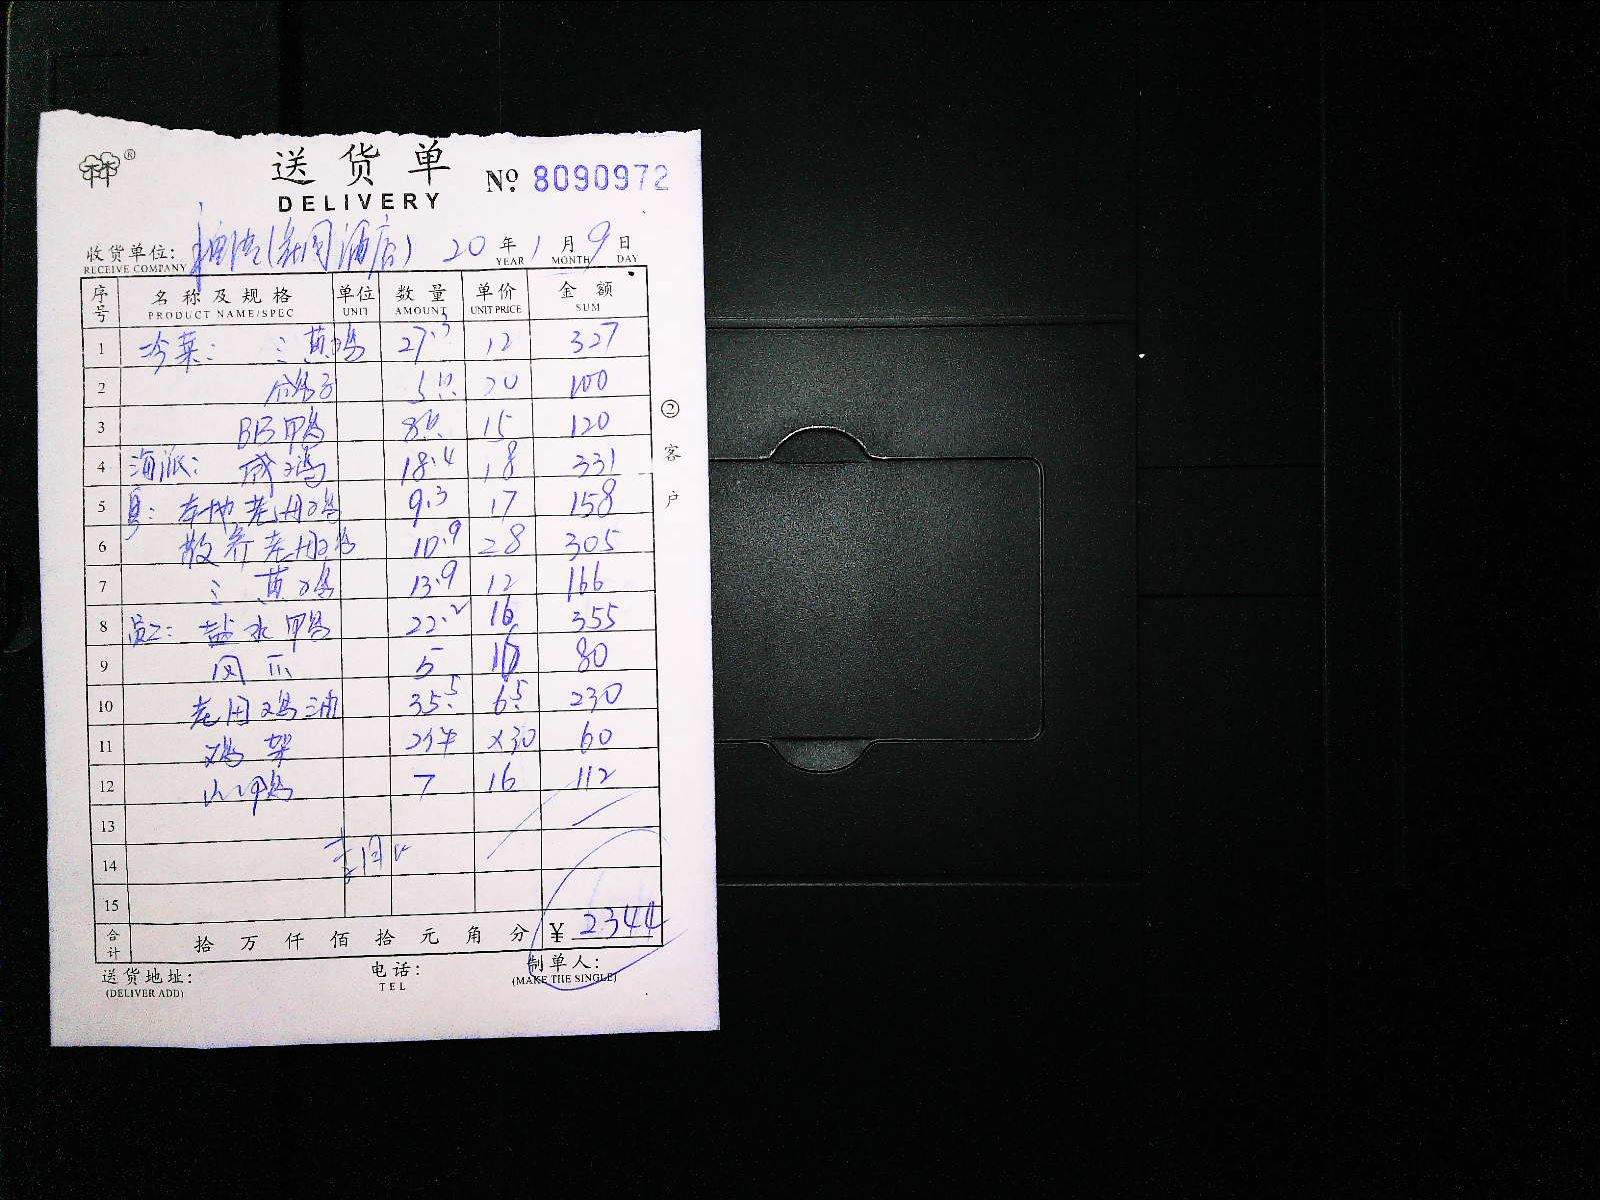 林®
送货单
№ 8090972
DELIVERY
收货单位: (酒店) 20 年 1 月 9 日
RECEIVE COMPANY YEAR MONTH DAY
序号 名称及规格 单位 数量 单价 金额
PRODUCT NAME/SPEC UNIT AMOUNT UNIT PRICE SUM
1 冷菜: 三黄鸡 27.3 12 327
2 鸽子 5 20 100
3 BB鸭 8 15 120
4 海派: 咸鸡 18.4 18 331
5 本地老母鸡 9.3 17 158
6 散养老母鸡 10.9 28 305
7 三黄鸡 13.9 12 166
8 员工: 盐水鸭 22.2 16 355
9 凤爪 5 16 80
10 老母鸡油 35.5 6.5 230
11 鸡架 2件 ×30 60
12 鸭 7 16 112
13
14
15
合计 拾 万 仟 佰 拾 元 角 分 ¥ 2344
送货地址: 电话: 制单人:
(DELIVER ADD) TEL (MAKE THE SINGLE)
② 客户